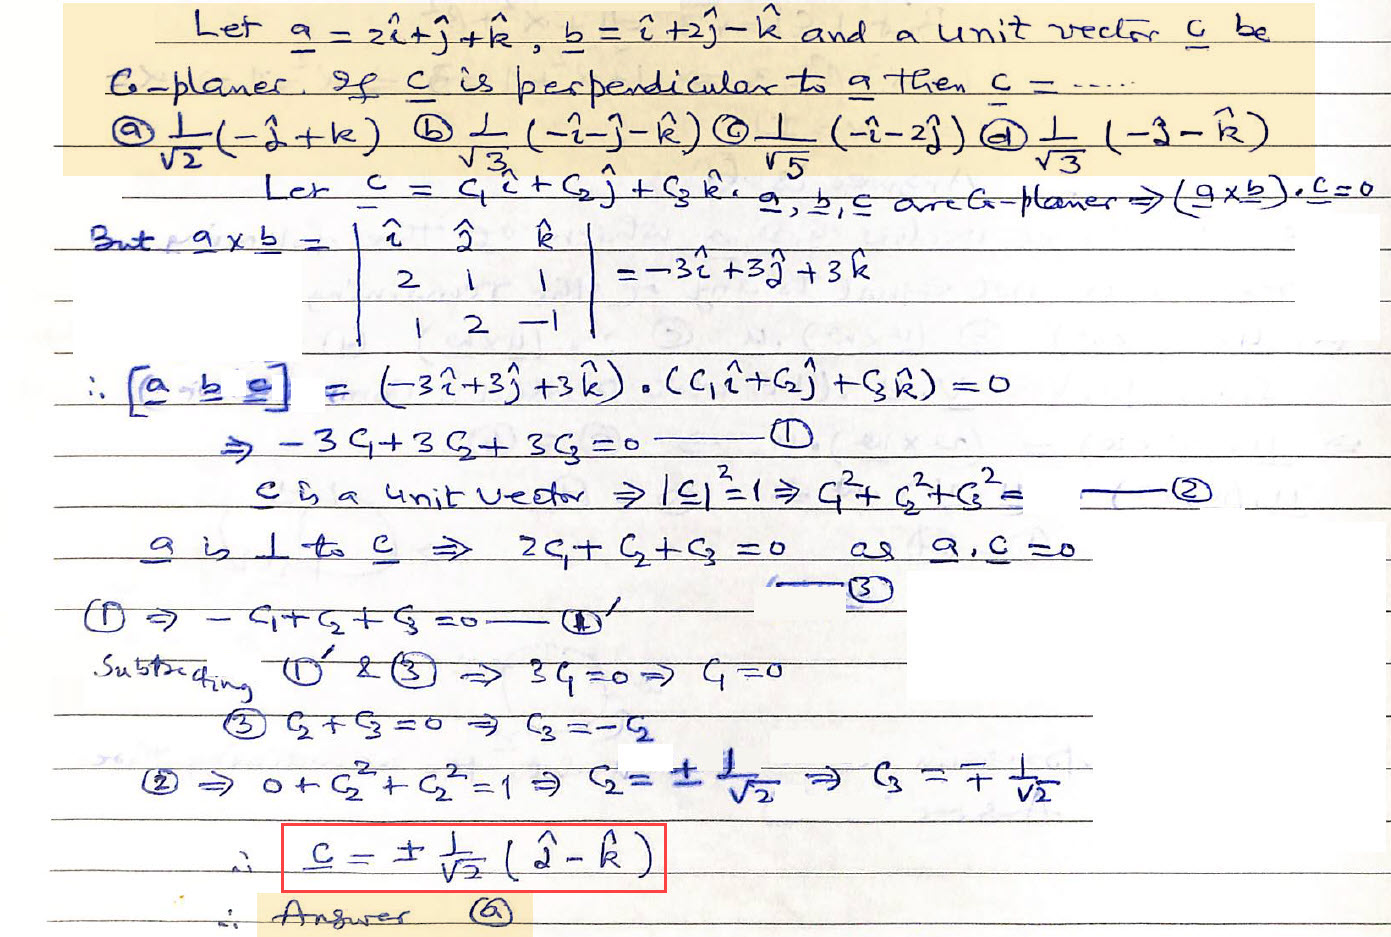 Let a = 2î+ĵ+k̂, b = î+2ĵ-k̂ and a unit vector c be
Co-planer. If c is perpendicular to a then c = .....
ⓐ 1/√2 (-ĵ+k) ⓑ 1/√3 (-î-ĵ-k̂) ⓒ 1/√5 (-î-2ĵ) ⓓ 1/√3 (-ĵ-k̂)
Let c = C₁î + C₂ĵ + C₃k̂. a, b, c are Co-planer ⇒ (a×b).c=0
But a×b = | î ĵ k̂ |
| 2 1 1 | = -3î+3ĵ+3k̂
| 1 2 -1 |
∴ [a b c] = (-3î+3ĵ+3k̂).(C₁î+C₂ĵ+C₃k̂)=0
⇒ -3C₁+3C₂+3C₃=0 —— ①
c is a unit vector ⇒ |c|²=1 ⇒ C₁²+C₂²+C₃²= —— ②
a is ⊥ to c ⇒ 2C₁+C₂+C₃=0 as a.c=0
—— ③
① ⇒ -C₁+C₂+C₃=0 —— ①′
Subtracting ①′ & ③ ⇒ 3C₁=0 ⇒ C₁=0
③ C₂+C₃=0 ⇒ C₃=-C₂
② ⇒ 0+C₂²+C₂²=1 ⇒ C₂= ± 1/√2 ⇒ C₃ = ∓ 1/√2
∴ c = ± 1/√2 (ĵ-k̂)
∴ Answer ⓐ